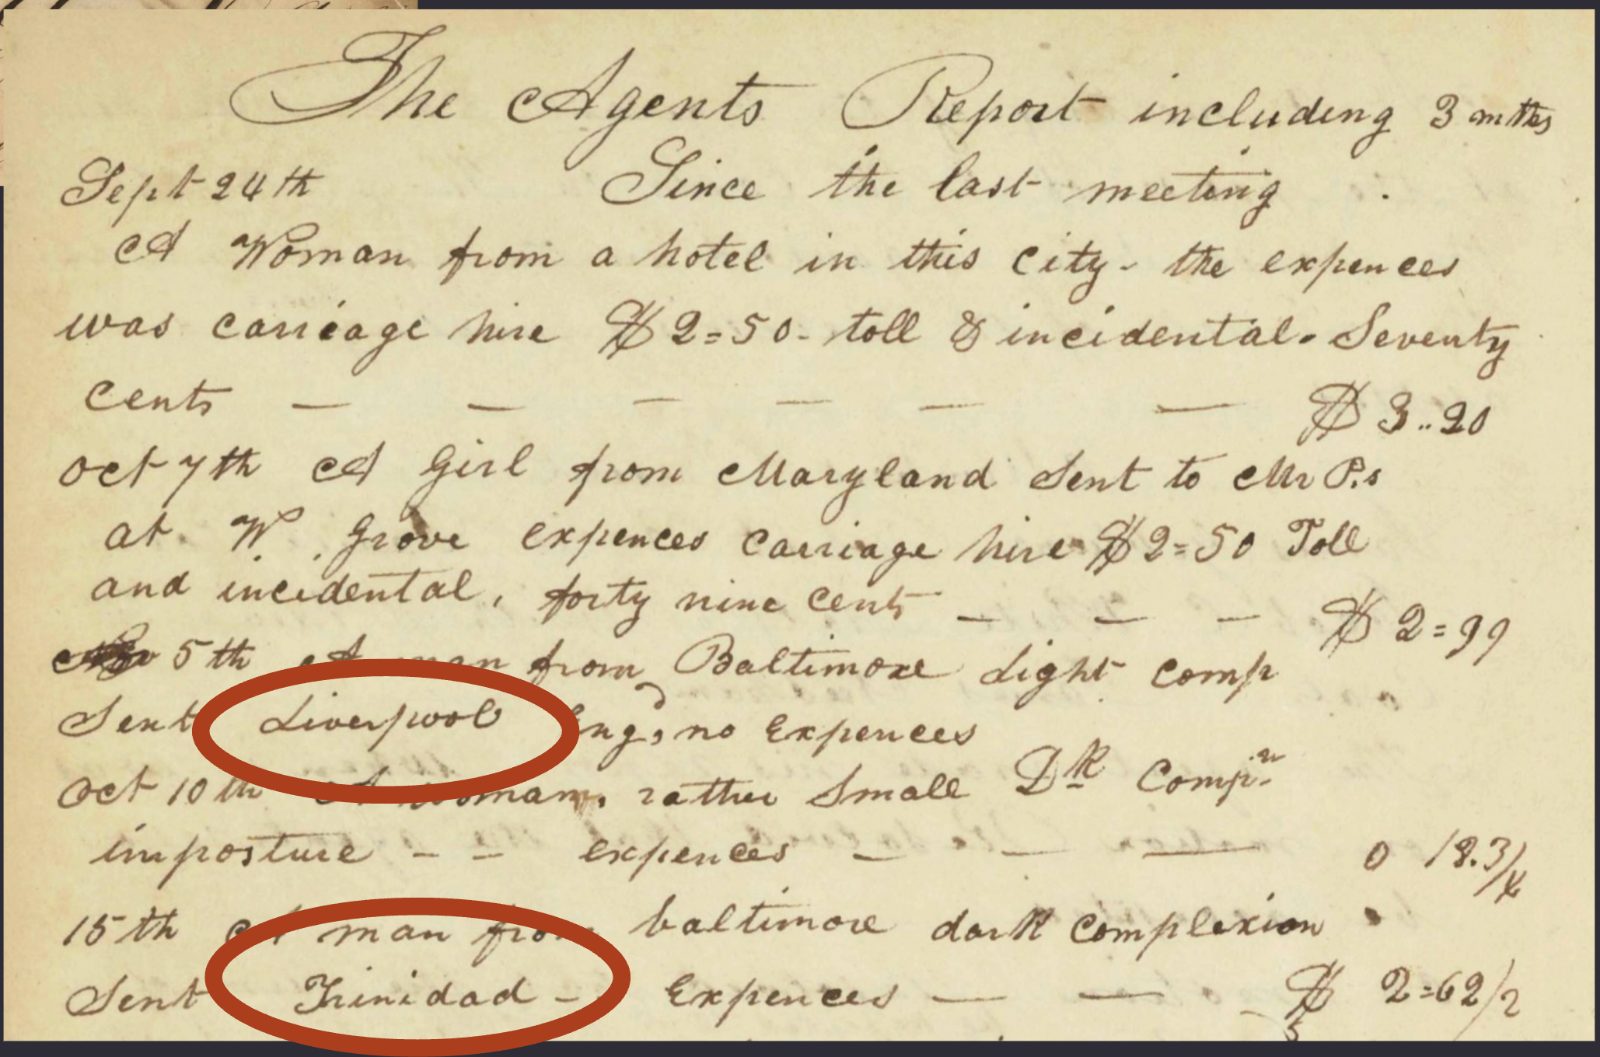 The Agents Report including 3 mths
Sept 24th Since the last meeting
A Woman from a hotel in this city - the expences
was carriage hire $2=50 - toll & incidental - Seventy
cents — — — — — — $3..20
Oct 7th A Girl from Maryland Sent to Mr P.s
at W. Grove expences carriage hire $2=50 Toll
and incidental, forty nine cents — — — $2=99
5th A man from Baltimore Light Comp
Sent Liverpool Engd, no Expences
Oct 10th A woman, rather Small Dk Compn
imposture - - expences — — — 0 18.3/4
15th A man from baltimore dark Complexion
Sent Trinidad - Expences — — $2=62/2